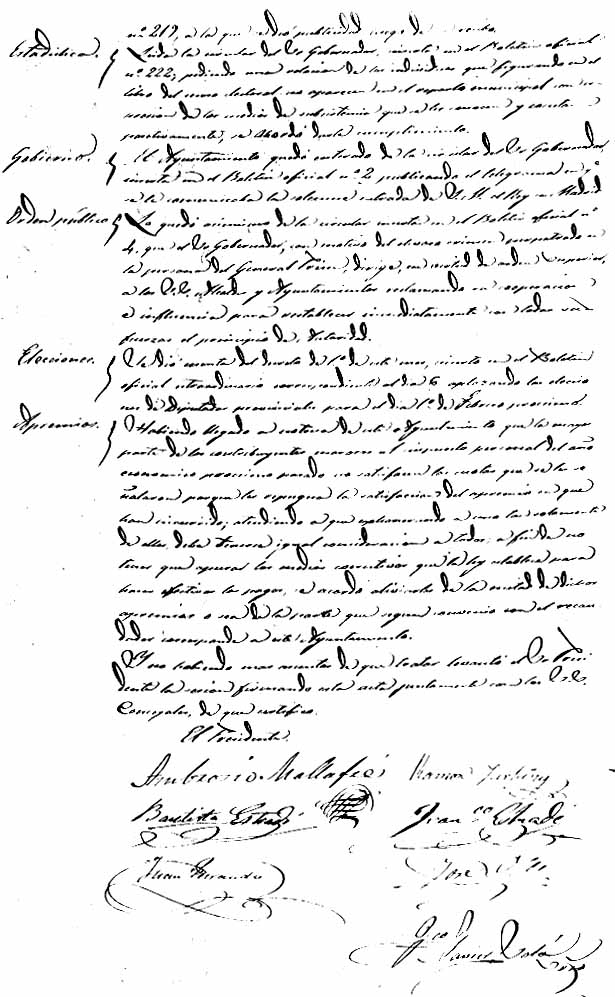 nº 219, a la que se dió publicidad
Estadistica. Leida la circular del Sr Gobernador, inserta en el Boletin oficial
nº 222, pidiendo una relacion de los individuos que figurando en el
libro del censo electoral no aparecen en el reparto municipal con es-
presion de los medios de subsistencia que se les conocen y
se acordó darle cumplimiento.
Gobierno. El Ayuntamiento quedó enterado de la circular del Sr Gobernador,
inserta en el Boletin oficial nº 2 publicando el telegrama en que
se le comunicaba la solemne entrada de S. M. el Rey en Madrid
Orden público Lo quedó asimismo de la circular inserta en el Boletin oficial nº
4, que el Sr Gobernador, con motivo del crimen perpetrado en
la persona del General Prim, dirige, en virtud de orden superior,
a los S.S. Alcaldes y Ayuntamientos reclamando su cooperacion
e influencia para restablecer inmediatamente con todas sus
fuerzas el principio de Autoridad.
Elecciones. Se dió cuenta del decreto de 1º de este mes, inserto en el Boletin
oficial extraordinario correspondiente al dia 6 aplazando las eleccio
nes de diputados provinciales para el dia 1º de Febrero procsimo.
Apremios. Habiendo llegado a noticia de este Ayuntamiento que la mayor
parte de los contribuyentes morosos al impuesto personal del año
economico procsimo pasado no satisfacen las cuotas que se les se-
ñalaron porque les repugna la satisfaccion del apremio en que
han incurrido, atendiendo a que
de ellos, debe tenerse igual consideracion a todos, a fin de no
tener que apurar los medios coercitivos que la ley establece para
hacer efectivos los pagos, se acordó alivi de la mitad de dichos
apremios o sea de la parte que segun convenio con el recau-
dador corresponde a este Ayuntamiento.
Y no habiendo mas asuntos de que tratar levantó el Sr Presi
dente la sesion firmando esta acta juntamente con los S.S.
Concejales, de que certifico.
El Presidente.
Ambrosio Mallafré Ramon
Bautista Franco
Juan José
Javier